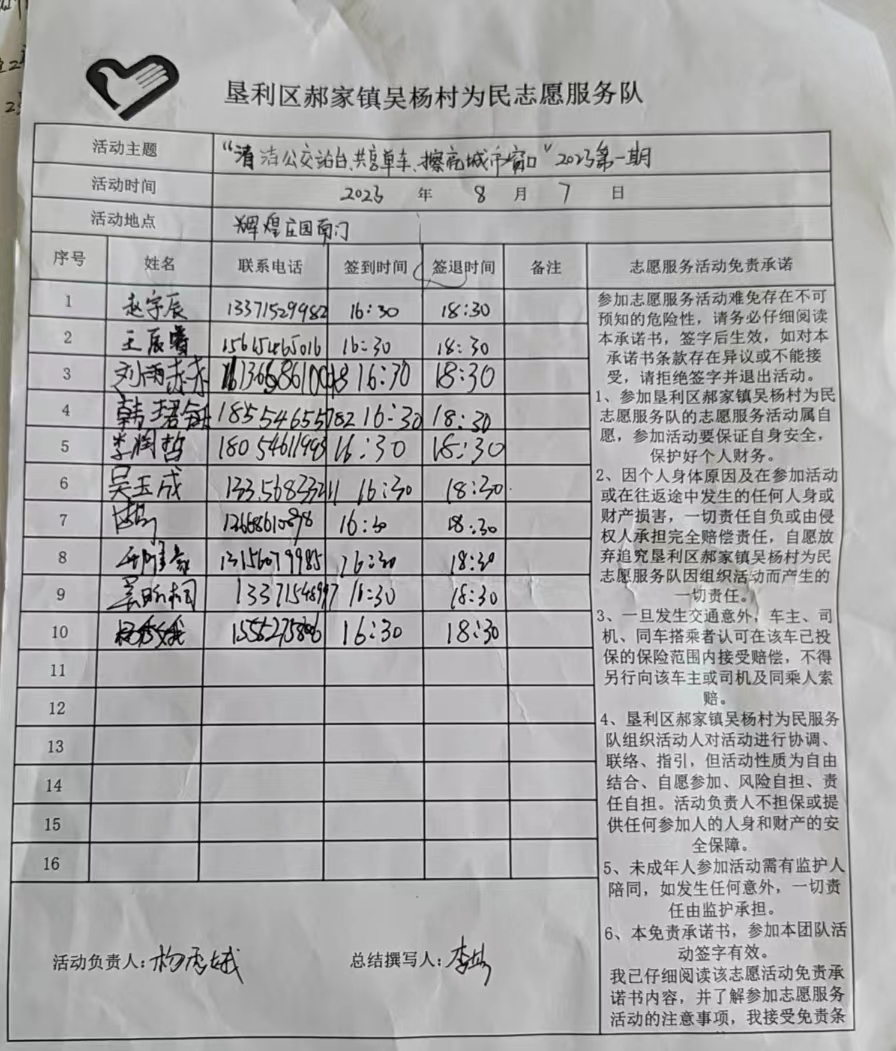 垦利区郝家镇吴杨村为民志愿服务队
活动主题 “清洁公交站台、共享单车、擦亮城市窗口”2023第一期
活动时间 2023 年 8 月 7 日
活动地点 辉煌庄园南门
序号 姓名 联系电话 签到时间 签退时间 备注 志愿服务活动免责承诺
1 赵宇辰 13371529982 16:30 18:30
2 王辰睿 15615465016 16:30 18:30
3 刘雨赤赤 16:30 18:30
4 韩珺 18554655782 16:30 18:30
5 李润哲 18054611993 16:30 18:30
6 吴玉成 13356833211 16:30 18:30
7 16:30 18:30
8 13156079985 16:30 18:30
9 16:30 18:30
10 杨秀娥 16:30 18:30
11
12
13
14
15
16
参加志愿服务活动难免存在不可
预知的危险性，请务必仔细阅读
本承诺书，签字后生效，如对本
承诺书条款存在异议或不能接
受，请拒绝签字并退出活动。
1、参加垦利区郝家镇吴杨村为民
志愿服务队的志愿服务活动属自
愿，参加活动要保证自身安全，
保护好个人财务。
2、因个人身体原因及在参加活动
或在往返途中发生的任何人身或
财产损害，一切责任自负或由侵
权人承担完全赔偿责任，自愿放
弃追究垦利区郝家镇吴杨村为民
志愿服务队因组织活动而产生的
一切责任。
3、一旦发生交通意外，车主、司
机、同车搭乘者认可在该车已投
保的保险范围内接受赔偿，不得
另行向该车主或司机及同乘人索
赔。
4、垦利区郝家镇吴杨村为民服务
队组织活动人对活动进行协调、
联络、指引，但活动性质为自由
结合、自愿参加、风险自担、责
任自担。活动负责人不担保或提
供任何参加人的人身和财产的安
全保障。
5、未成年人参加活动需有监护人
陪同，如发生任何意外，一切责
任由监护承担。
6、本免责承诺书，参加本团队活
动签字有效。
我已仔细阅读该志愿活动免责承
诺书内容，并了解参加志愿服务
活动的注意事项，我接受免责条
活动负责人：杨秀娥 总结撰写人：李